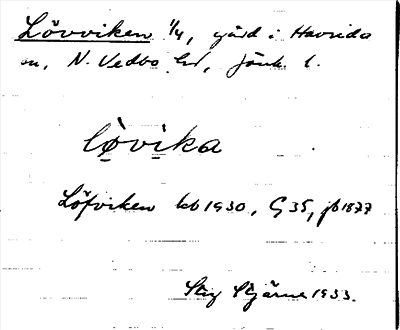 Lövviken 1/4, gård i Haurida
sn, N. Vedbo hd, Jönk. l.
lø̀vi̱ka
Löfviken kb 1930, G 35, jb 1877
Stig Stjärne 1933.